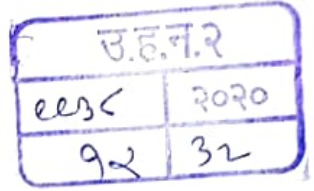 उ.ह.न.२
९९३८ २०२०
१२ ३२